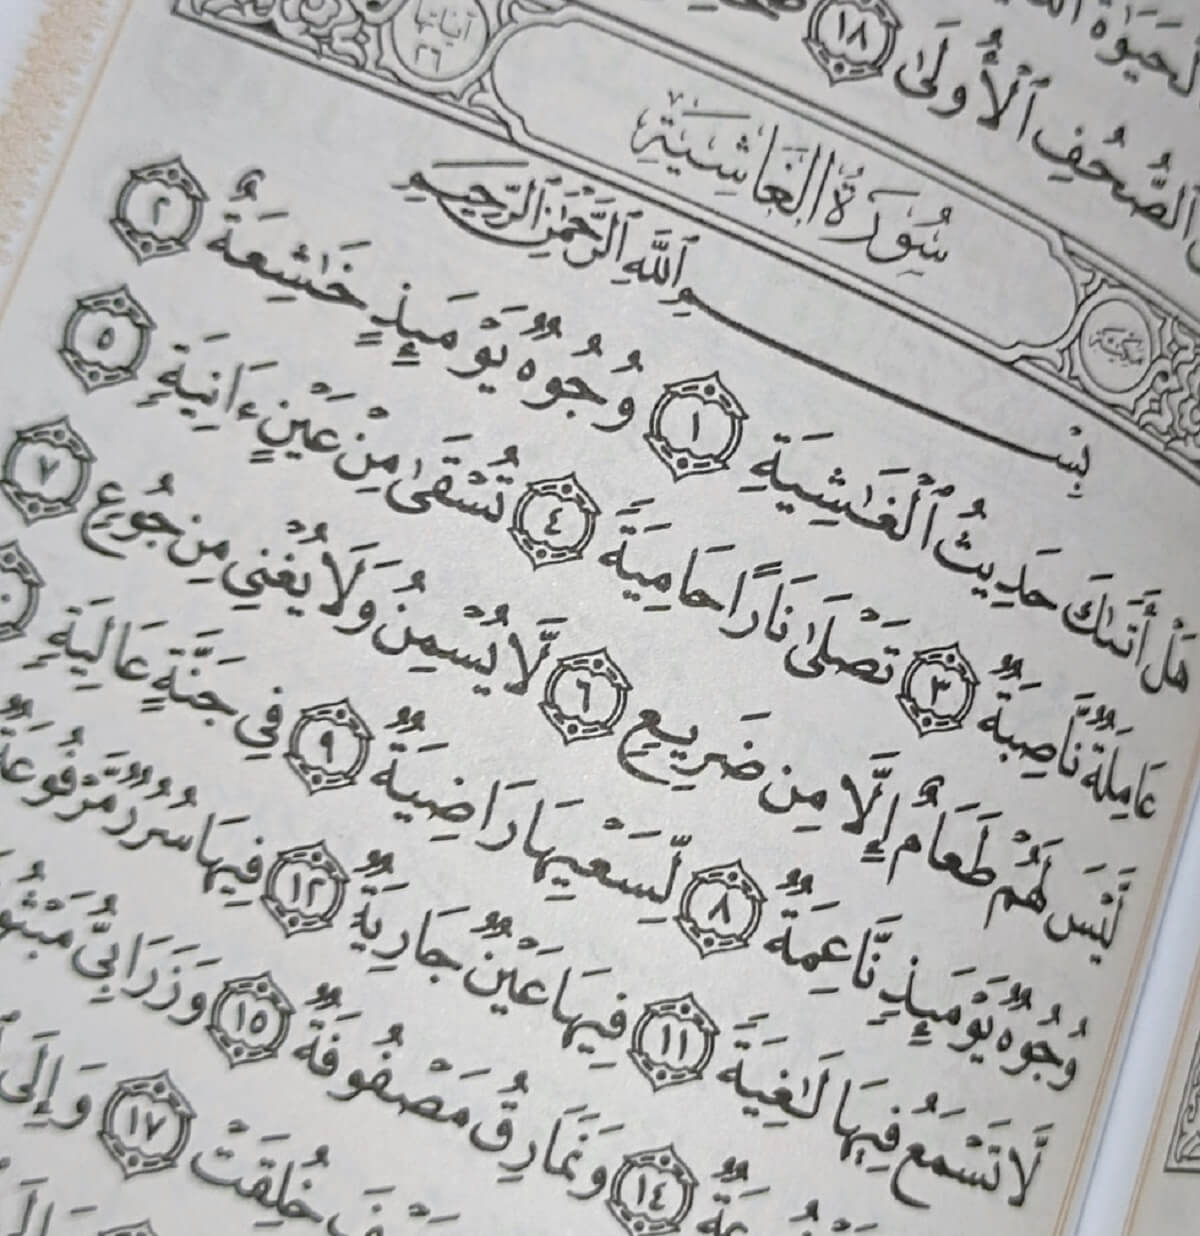 لْحَيَوٰةَ
ٱلصُّحُفِ ٱلْأُولَىٰ ١٨
سُورَةُ الغَاشِيَةِ
آيَاتُهَا ٢٦
بِسْمِ ٱللَّهِ ٱلرَّحْمَٰنِ ٱلرَّحِيمِ
هَلْ أَتَىٰكَ حَدِيثُ ٱلْغَٰشِيَةِ ١ وُجُوهٌ يَوْمَئِذٍ خَٰشِعَةٌ ٢
عَامِلَةٌ نَّاصِبَةٌ ٣ تَصْلَىٰ نَارًا حَامِيَةً ٤ تُسْقَىٰ مِنْ عَيْنٍ ءَانِيَةٍ ٥
لَّيْسَ لَهُمْ طَعَامٌ إِلَّا مِن ضَرِيعٍ ٦ لَّا يُسْمِنُ وَلَا يُغْنِي مِن جُوعٍ ٧
وُجُوهٌ يَوْمَئِذٍ نَّاعِمَةٌ ٨ لِّسَعْيِهَا رَاضِيَةٌ ٩ فِي جَنَّةٍ عَالِيَةٍ
لَّا تَسْمَعُ فِيهَا لَٰغِيَةً ١١ فِيهَا عَيْنٌ جَارِيَةٌ ١٢ فِيهَا سُرُرٌ مَّرْفُوعَةٌ
١٤ وَنَمَارِقُ مَصْفُوفَةٌ ١٥ وَزَرَابِيُّ
خُلِقَتْ ١٧ وَإِلَى